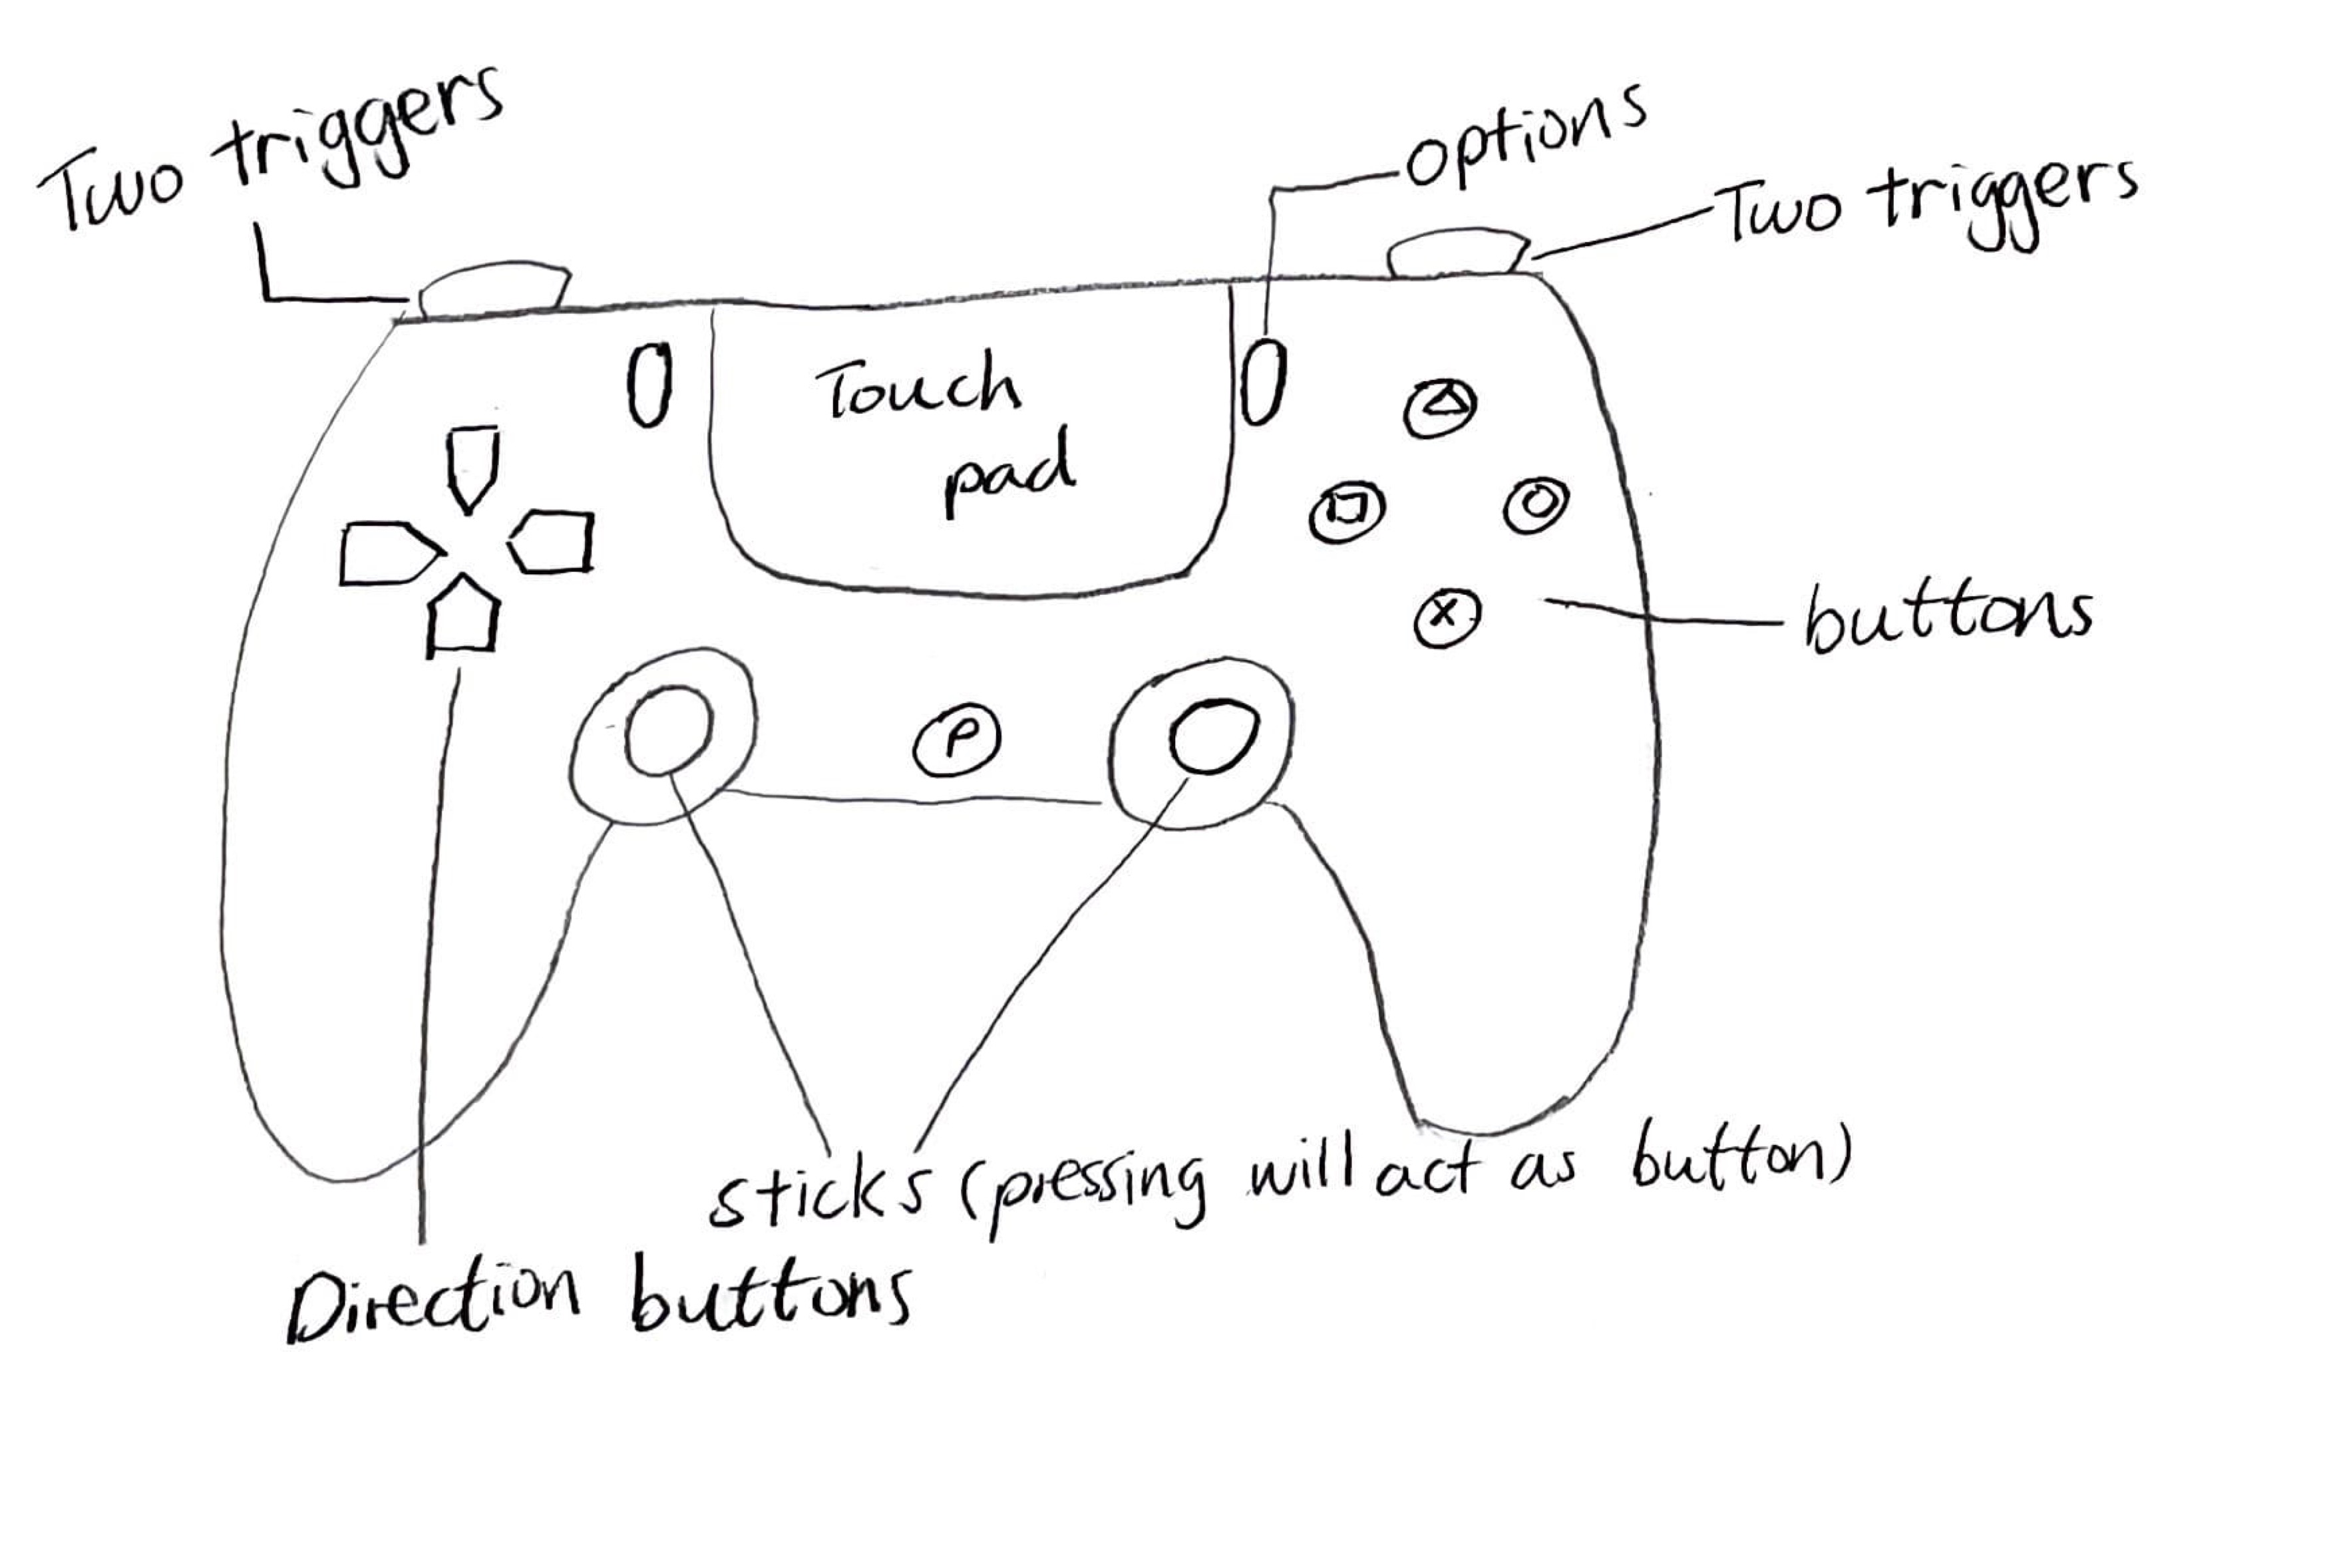 Two triggers
options
Two triggers
Touch
pad
X
buttons
P
sticks (pressing will act as button)
Direction buttons